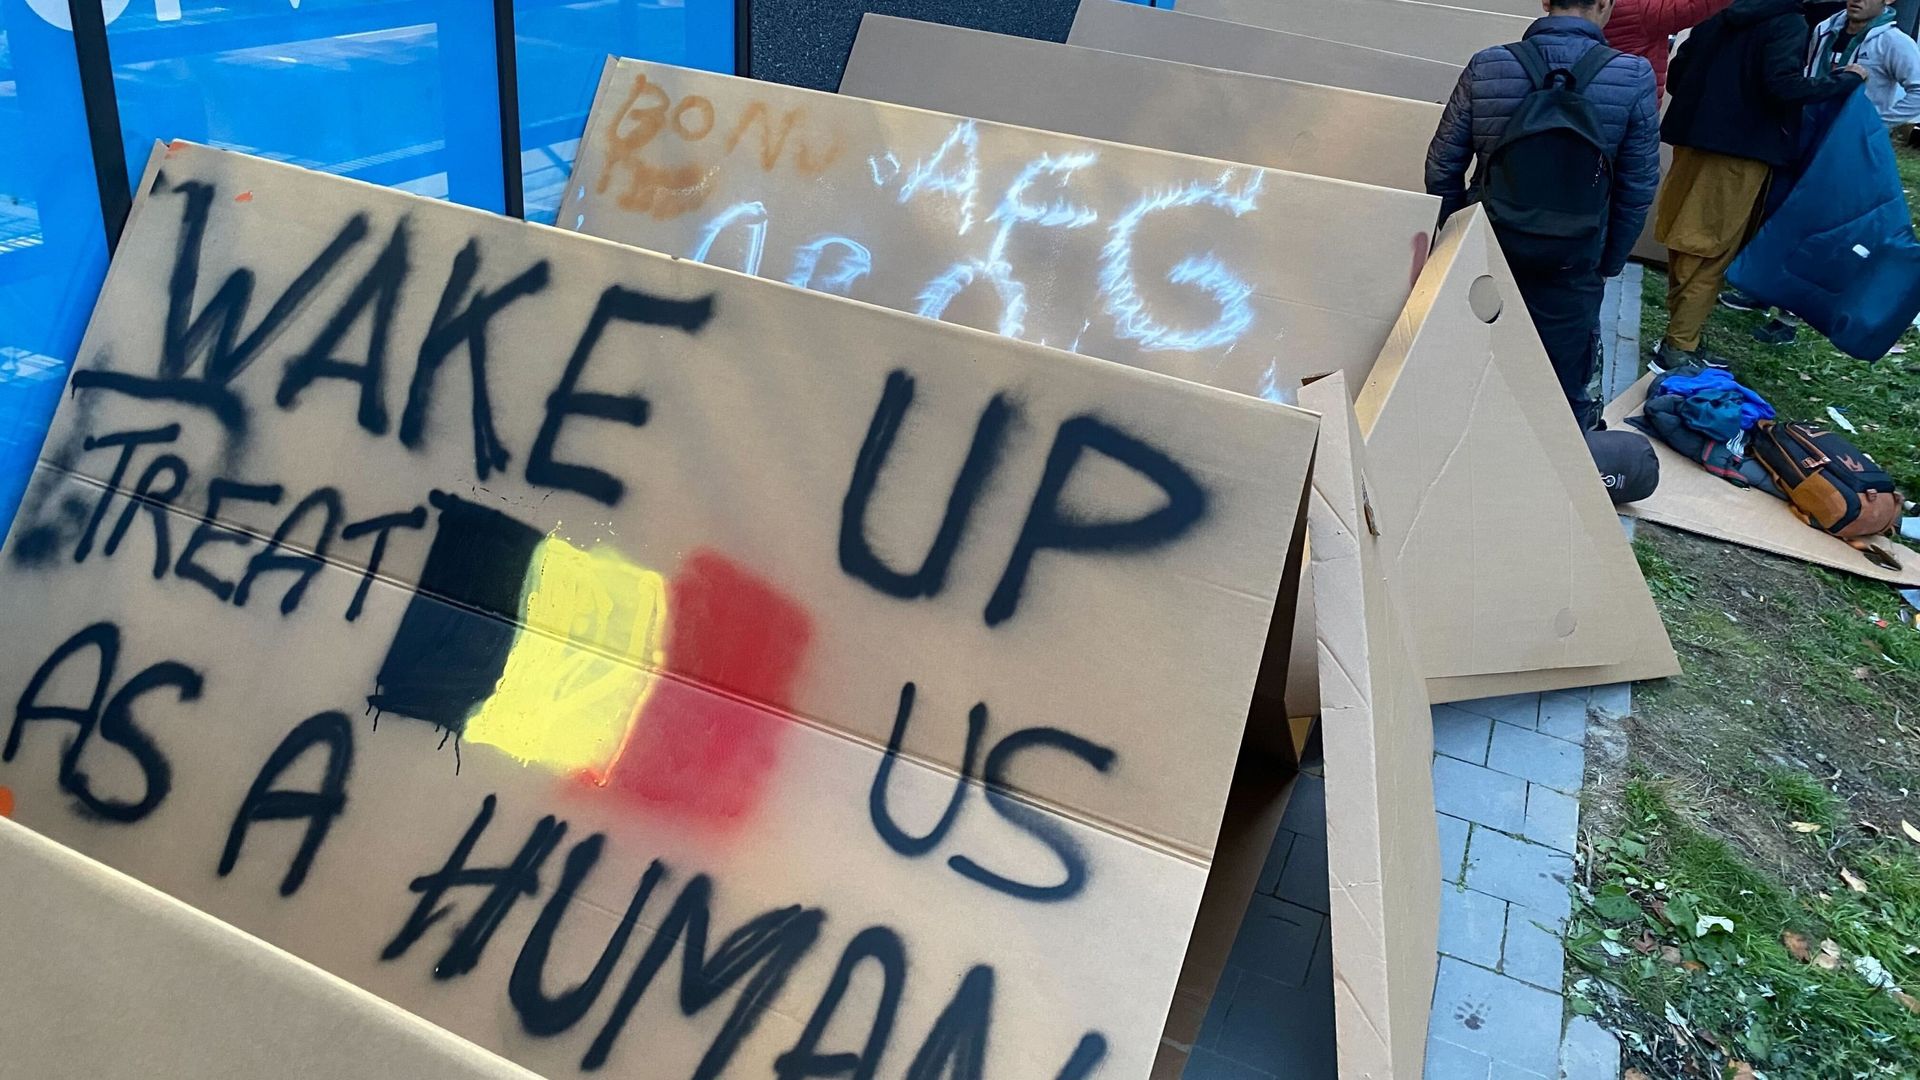 WAKE UP
TREAT US
AS A HUMAN
BONJ
AFG